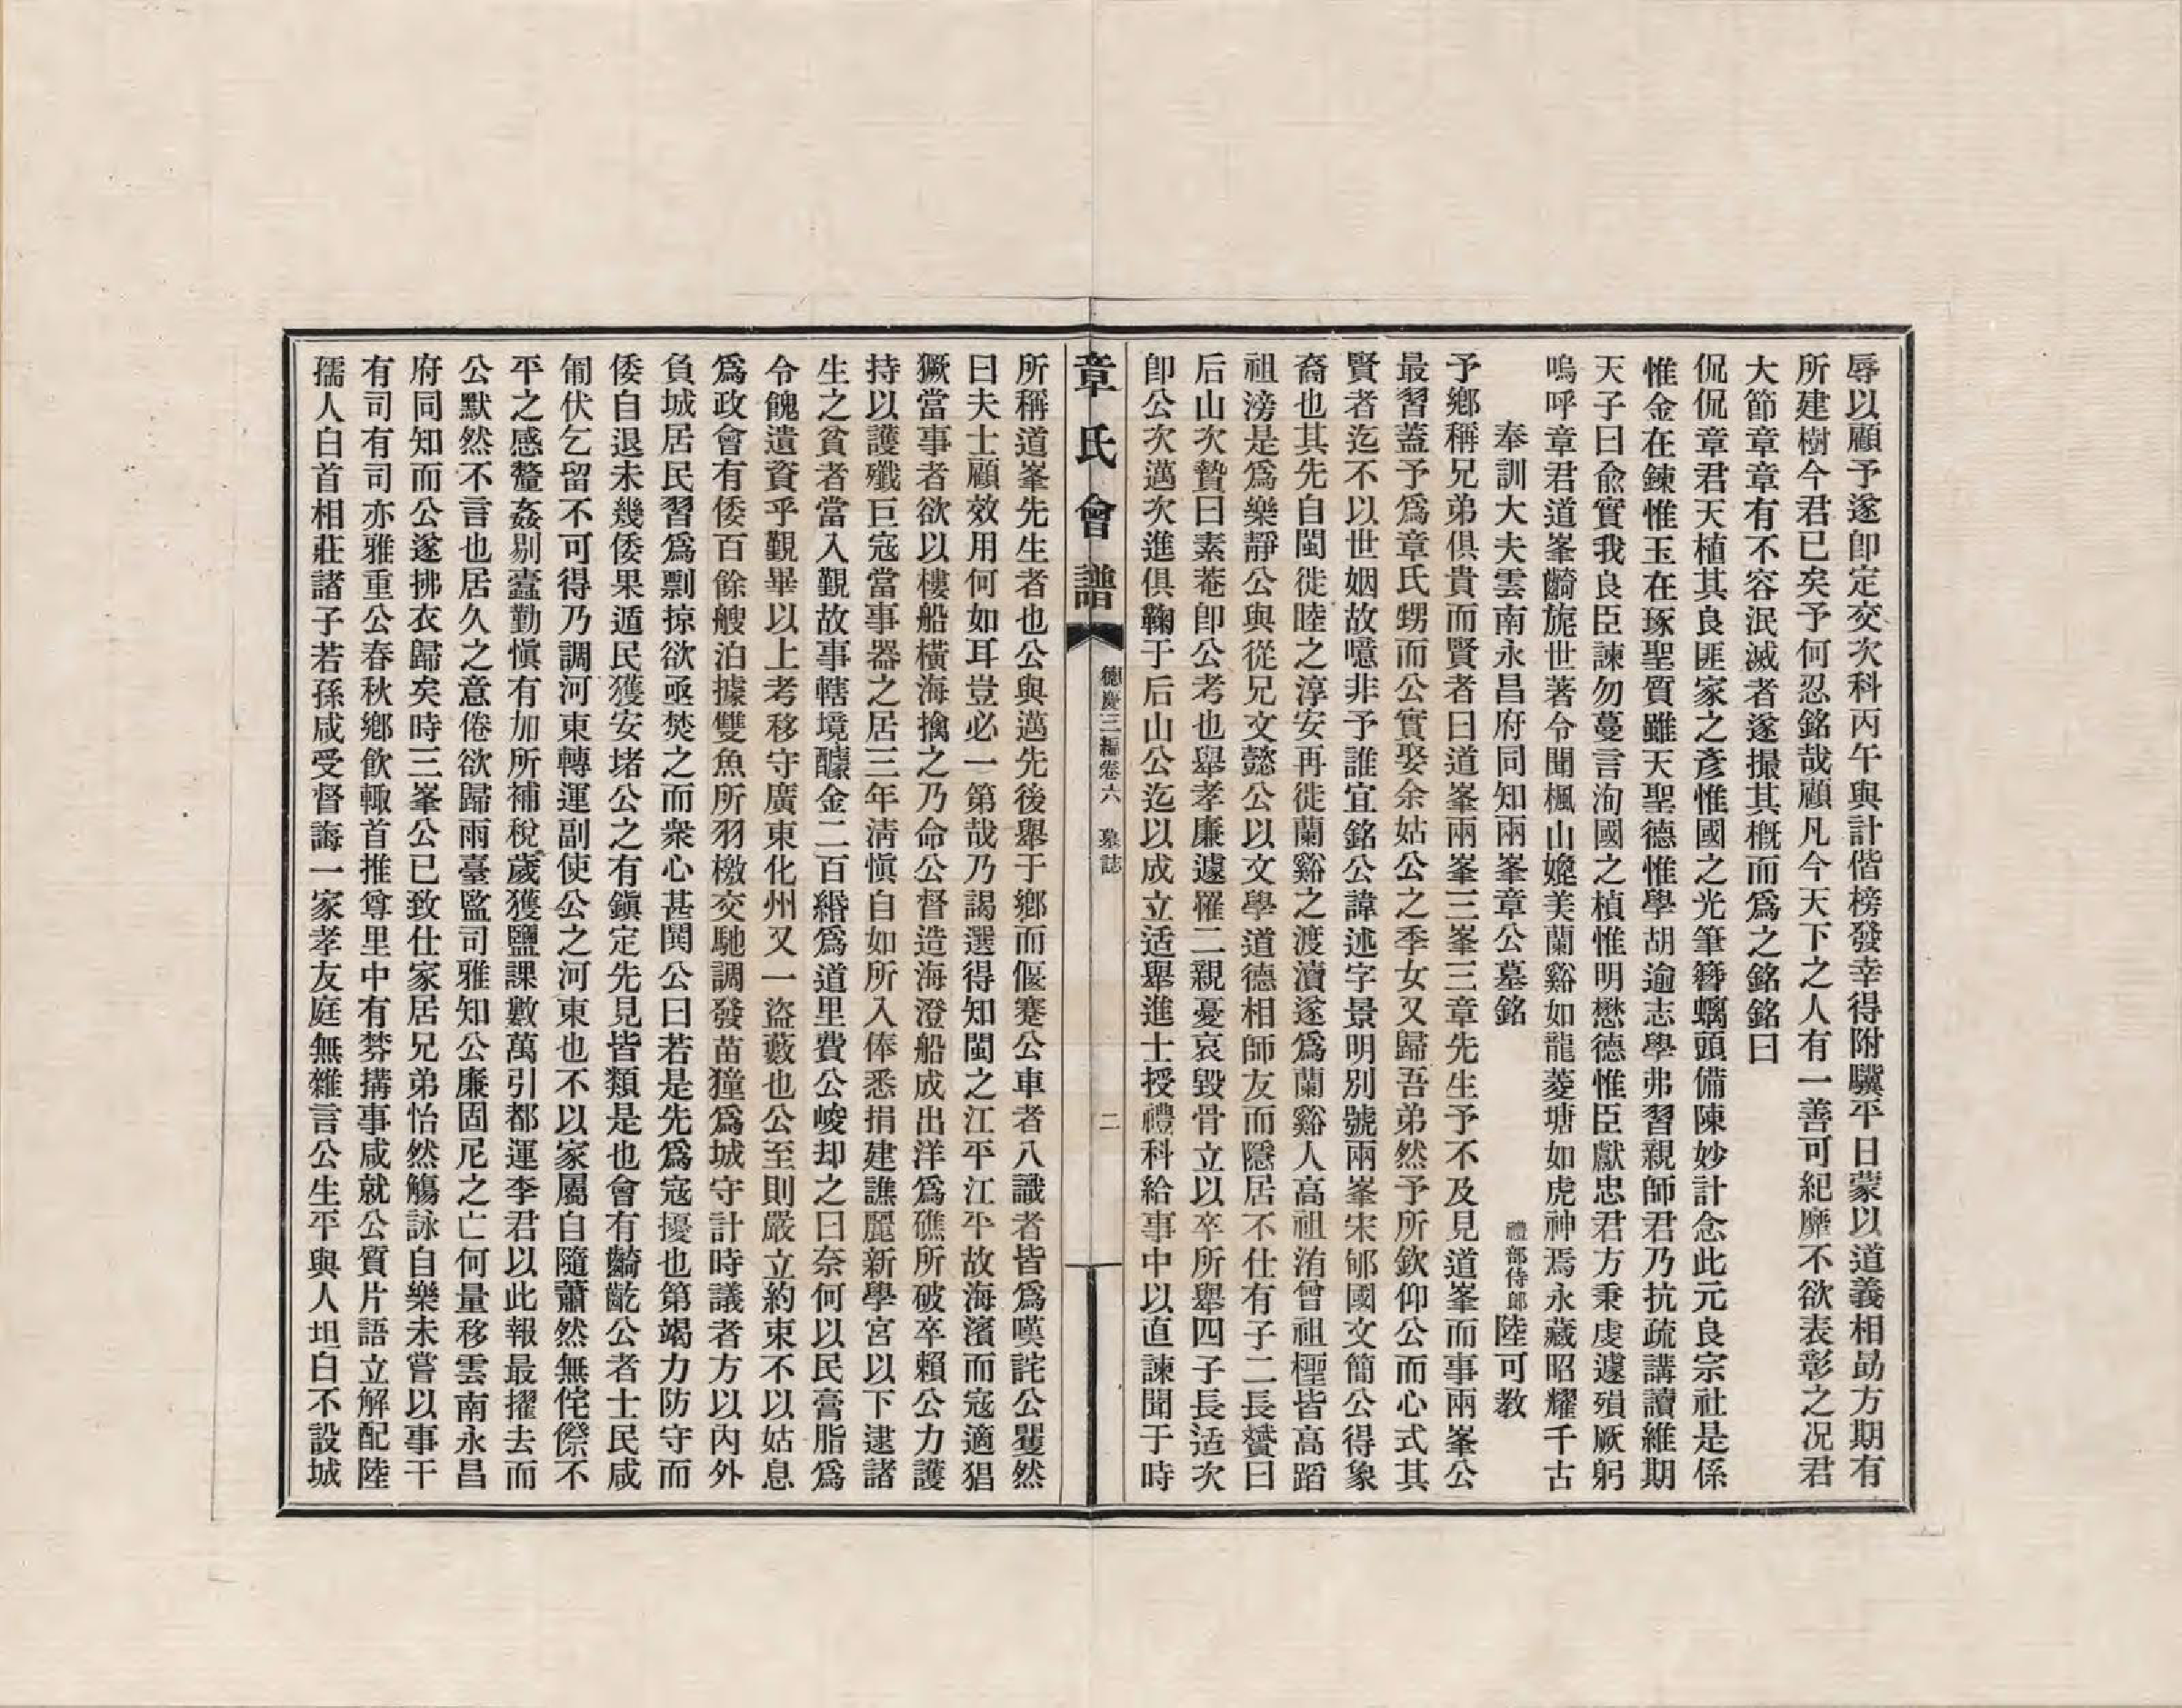 辱以顧予遂卽定交次科丙午與計偕榜發幸得附驥平日蒙以道義相勗方期有
所建樹今君已矣予何忍銘哉顧凡今天下之人有一善可紀靡不欲表彰之況君
大節章章有不容泯滅者遂撮其槪而爲之銘銘曰
侃侃章君天植其良匪家之彥惟國之光筆簪螭頭備陳妙計念此元良宗社是係
惟金在鍊惟玉在琢聖質雖天聖德惟學胡逾志學弗習親師君乃抗疏講讀維期
天子曰兪實我良臣諫勿蔓言洵國之楨惟明懋德惟臣獻忠君方秉虔遽殞厥躬
嗚呼章君道峯齮旎世著令聞楓山媲美蘭谿如龍菱塘如虎神焉永藏昭耀千古
奉訓大夫雲南永昌府同知兩峯章公墓銘 禮部侍郎陸可教
予鄉稱兄弟俱貴而賢者曰道峯兩峯三峯三章先生予不及見道峯而事兩峯公
最習蓋予爲章氏甥而公實娶余姑公之季女又歸吾弟然予所欽仰公而心式其
賢者迄不以世姻故噫非予誰宜銘公諱述字景明別號兩峯宋郇國文簡公得象
裔也其先自閩徙睦之淳安再徙蘭谿之渡瀆遂爲蘭谿人高祖洧曾祖㮚皆高蹈
祖滂是爲樂靜公與從兄文懿公以文學道德相師友而隱居不仕有子二長贇曰
后山次贄曰素菴卽公考也舉孝廉遽罹二親憂哀毀骨立以卒所舉四子長适次
卽公次邁次進俱鞠于后山公迄以成立适舉進士授禮科給事中以直諫聞于時
章氏會譜 德慶三編卷六 墓誌 二
所稱道峯先生者也公與邁先後舉于鄉而偃蹇公車者八識者皆爲嘆詫公矍然
曰夫士顧效用何如耳豈必一第哉乃謁選得知閩之江平江平故海濱而寇適猖
獗當事者欲以樓船橫海擒之乃命公督造海澄船成出洋爲礁所破卒賴公力護
持以護殲巨寇當事器之居三年淸愼自如所入俸悉捐建譙麗新學宮以下逮諸
生之貧者當入覲故事轄境醵金二百緡爲道里費公峻却之曰奈何以民膏脂爲
令餽遺資乎覲畢以上考移守廣東化州又一盜藪也公至則嚴立約束不以姑息
爲政會有倭百餘艘泊據雙魚所羽檄交馳調發苗獞爲城守計時議者方以內外
負城居民習爲剽掠欲亟焚之而衆心甚鬨公曰若是先爲寇擾也第竭力防守而
倭自退未幾倭果遁民獲安堵公之有鎭定先見皆類是也會有齮齕公者士民咸
匍伏乞留不可得乃調河東轉運副使公之河東也不以家屬自隨蕭然無侘傺不
平之感釐姦剔蠹勤愼有加所補稅歲獲鹽課數萬引都運李君以此報最擢去而
公默然不言也居久之意倦欲歸兩臺監司雅知公廉固尼之亡何量移雲南永昌
府同知而公遂拂衣歸矣時三峯公已致仕家居兄弟怡然觴詠自樂未嘗以事干
有司有司亦雅重公春秋鄉飮輙首推尊里中有棼搆事咸就公質片語立解配陸
孺人白首相莊諸子若孫咸受督誨一家孝友庭無雜言公生平與人坦白不設城